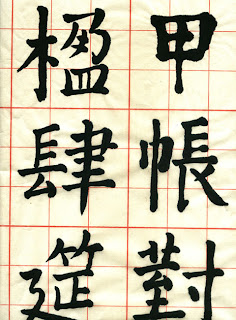 甲帳對
楹肆筵